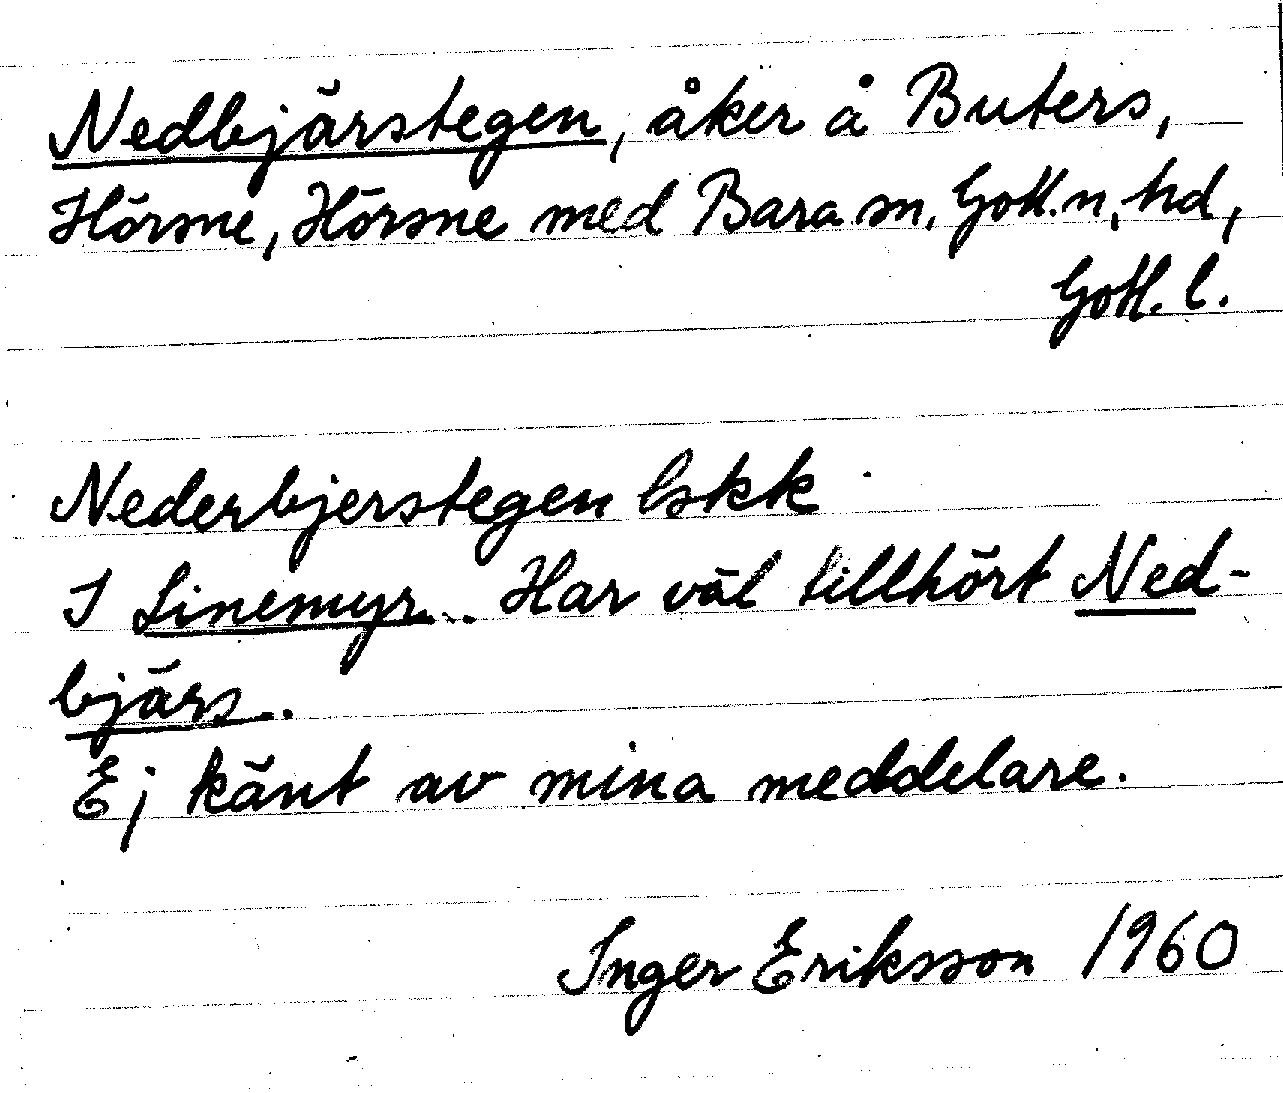 Nedbjärstegen, åker å Buters,
Hörsne, Hörsne med Bara sn, Gotl. n. hd,
Gotl. l.
Nederbjerstegen lskk
I Linemyr.. Har väl tillhört Ned-
bjärs..
Ej känt av mina meddelare.
Inger Eriksson 1960